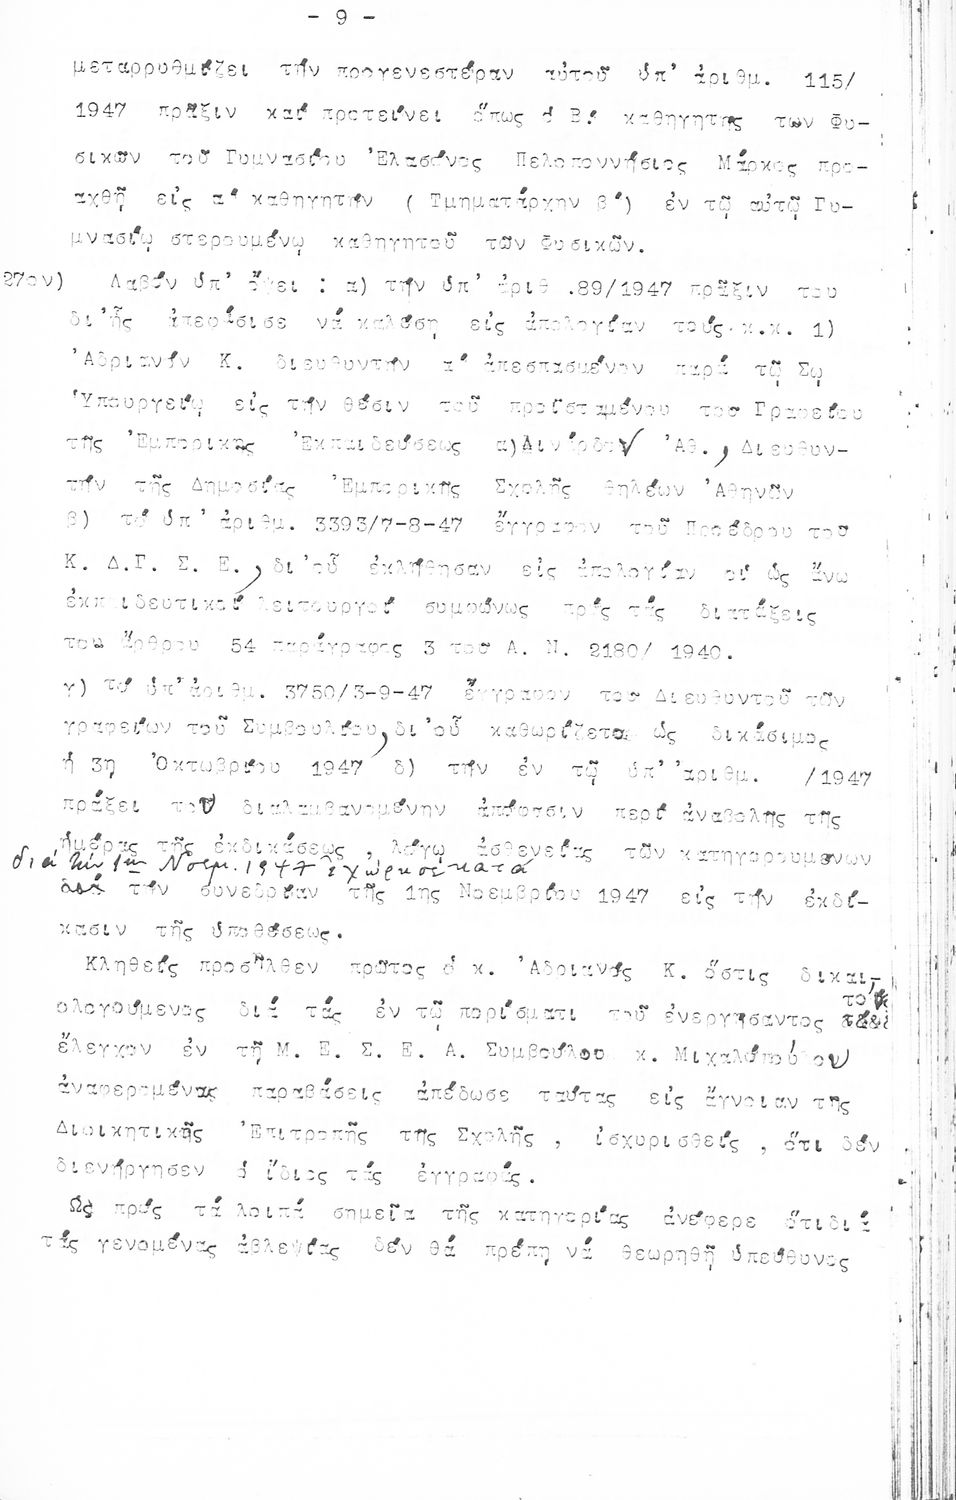 - 9 -
μεταρρυθμίζει τήν προγενεστέραν αὐτοῦ ὑπ' ἀριθμ. 115/
1947 πρᾶξιν καί προτείνει ὅπως ὁ Β.' καθηγητης των Φυ-
σικῶν τοῦ Γυμνασίου Ἐλασῶνος Πελοποννήσιος Μάρκος προ-
αχθῆ εἰς α' καθηγητήν ( Τμηματάρχην β') ἐν τῷ αὐτῷ Γυ-
μνασίῳ στερουμένῳ καθηγητοῦ τῶν Φυσικῶν.
27ον) Λαβόν ὑπ' ὄψει : α) τήν ὑπ' ἀριθ .89/1947 πρᾶξιν του
δι' ἧς ἀπεφάσισε νά καλέσῃ εἰς ἀπολογίαν τούς κ.κ. 1)
Ἀδριανόν Κ. διευθυντήν α' ἀπεσπασμένον παρά τῷ Σῳ
Ὑπουργείῳ εἰς τήν θέσιν τοῦ προϊσταμένου του Γραφείου
τῆς Ἐμπορικης Ἐκπαιδεύσεως α) Ἀθ., Διευθυν-
τήν τῆς Δημοσίας Ἐμπορικῆς Σχολῆς θηλέων Ἀθηνῶν
β) τό ὑπ' ἀριθμ. 3393/7-8-47 ἔγγραφον τοῦ Προέδρου του
Κ. Δ.Γ. Σ. Ε., δι' οὗ ἐκλήθησαν εἰς ἀπολογίαν οἱ ὡς ἄνω
ἐκπαιδευτικοί λειτουργοί συμφώνως πρός τάς διατάξεις
του ἄρθρου 54 παράγραφος 3 του Α. Ν. 2180/ 1940.
γ) τό ὑπ' ἀριθμ. 3750/3-9-47 ἔγγραφον του Διευθυντοῦ τῶν
γραφείων τοῦ Συμβουλίου, δι' οὗ καθωρίζετο ὡς δικάσιμος
ἡ 3η Ὀκτωβρίου 1947 δ) τήν ἐν τῷ ὑπ' ἀριθμ. /1947
πράξει του διαλαμβανομένην ἀπόφασιν περί ἀναβολῆς τῆς
ἡμέρας τῆς ἐκδικάσεως , λόγῳ ἀσθενείας τῶν κατηγορουμενων
διά τήν 1ην Νοεμ. 1947 ἐχώρησε κατά
τήν συνεδρίαν τῆς 1ης Νοεμβρίου 1947 εἰς τήν ἐκδί-
κασιν τῆς ὑποθέσεως.
Κληθείς προσῆλθεν πρῶτος ὁ κ. Ἀδριανός Κ. ὅστις δικαι-
ολογούμενος διά τάς ἐν τῷ πορίσματι τοῦ ἐνεργησαντος τον
ἔλεγχον ἐν τῇ Μ. Ε. Σ. Ε. Α. Συμβούλου κ. Μιχαλόπούλου
ἀναφερομένας παραβάσεις ἀπέδωσε ταύτας εἰς ἄγνοιαν τῆς
Διοικητικῆς Ἐπιτροπῆς τῆς Σχολῆς , ἰσχυρισθείς , ὅτι δέν
διενήργησεν ὁ ἴδιος τάς ἐγγραφάς.
Ὡς πρός τά λοιπά σημεῖα τῆς κατηγορίας ἀνέφερε ὅτιδιά
τάς γενομένας ἀβλεψίας δέν θά πρέπῃ νά θεωρηθῆ ὑπεύθυνος